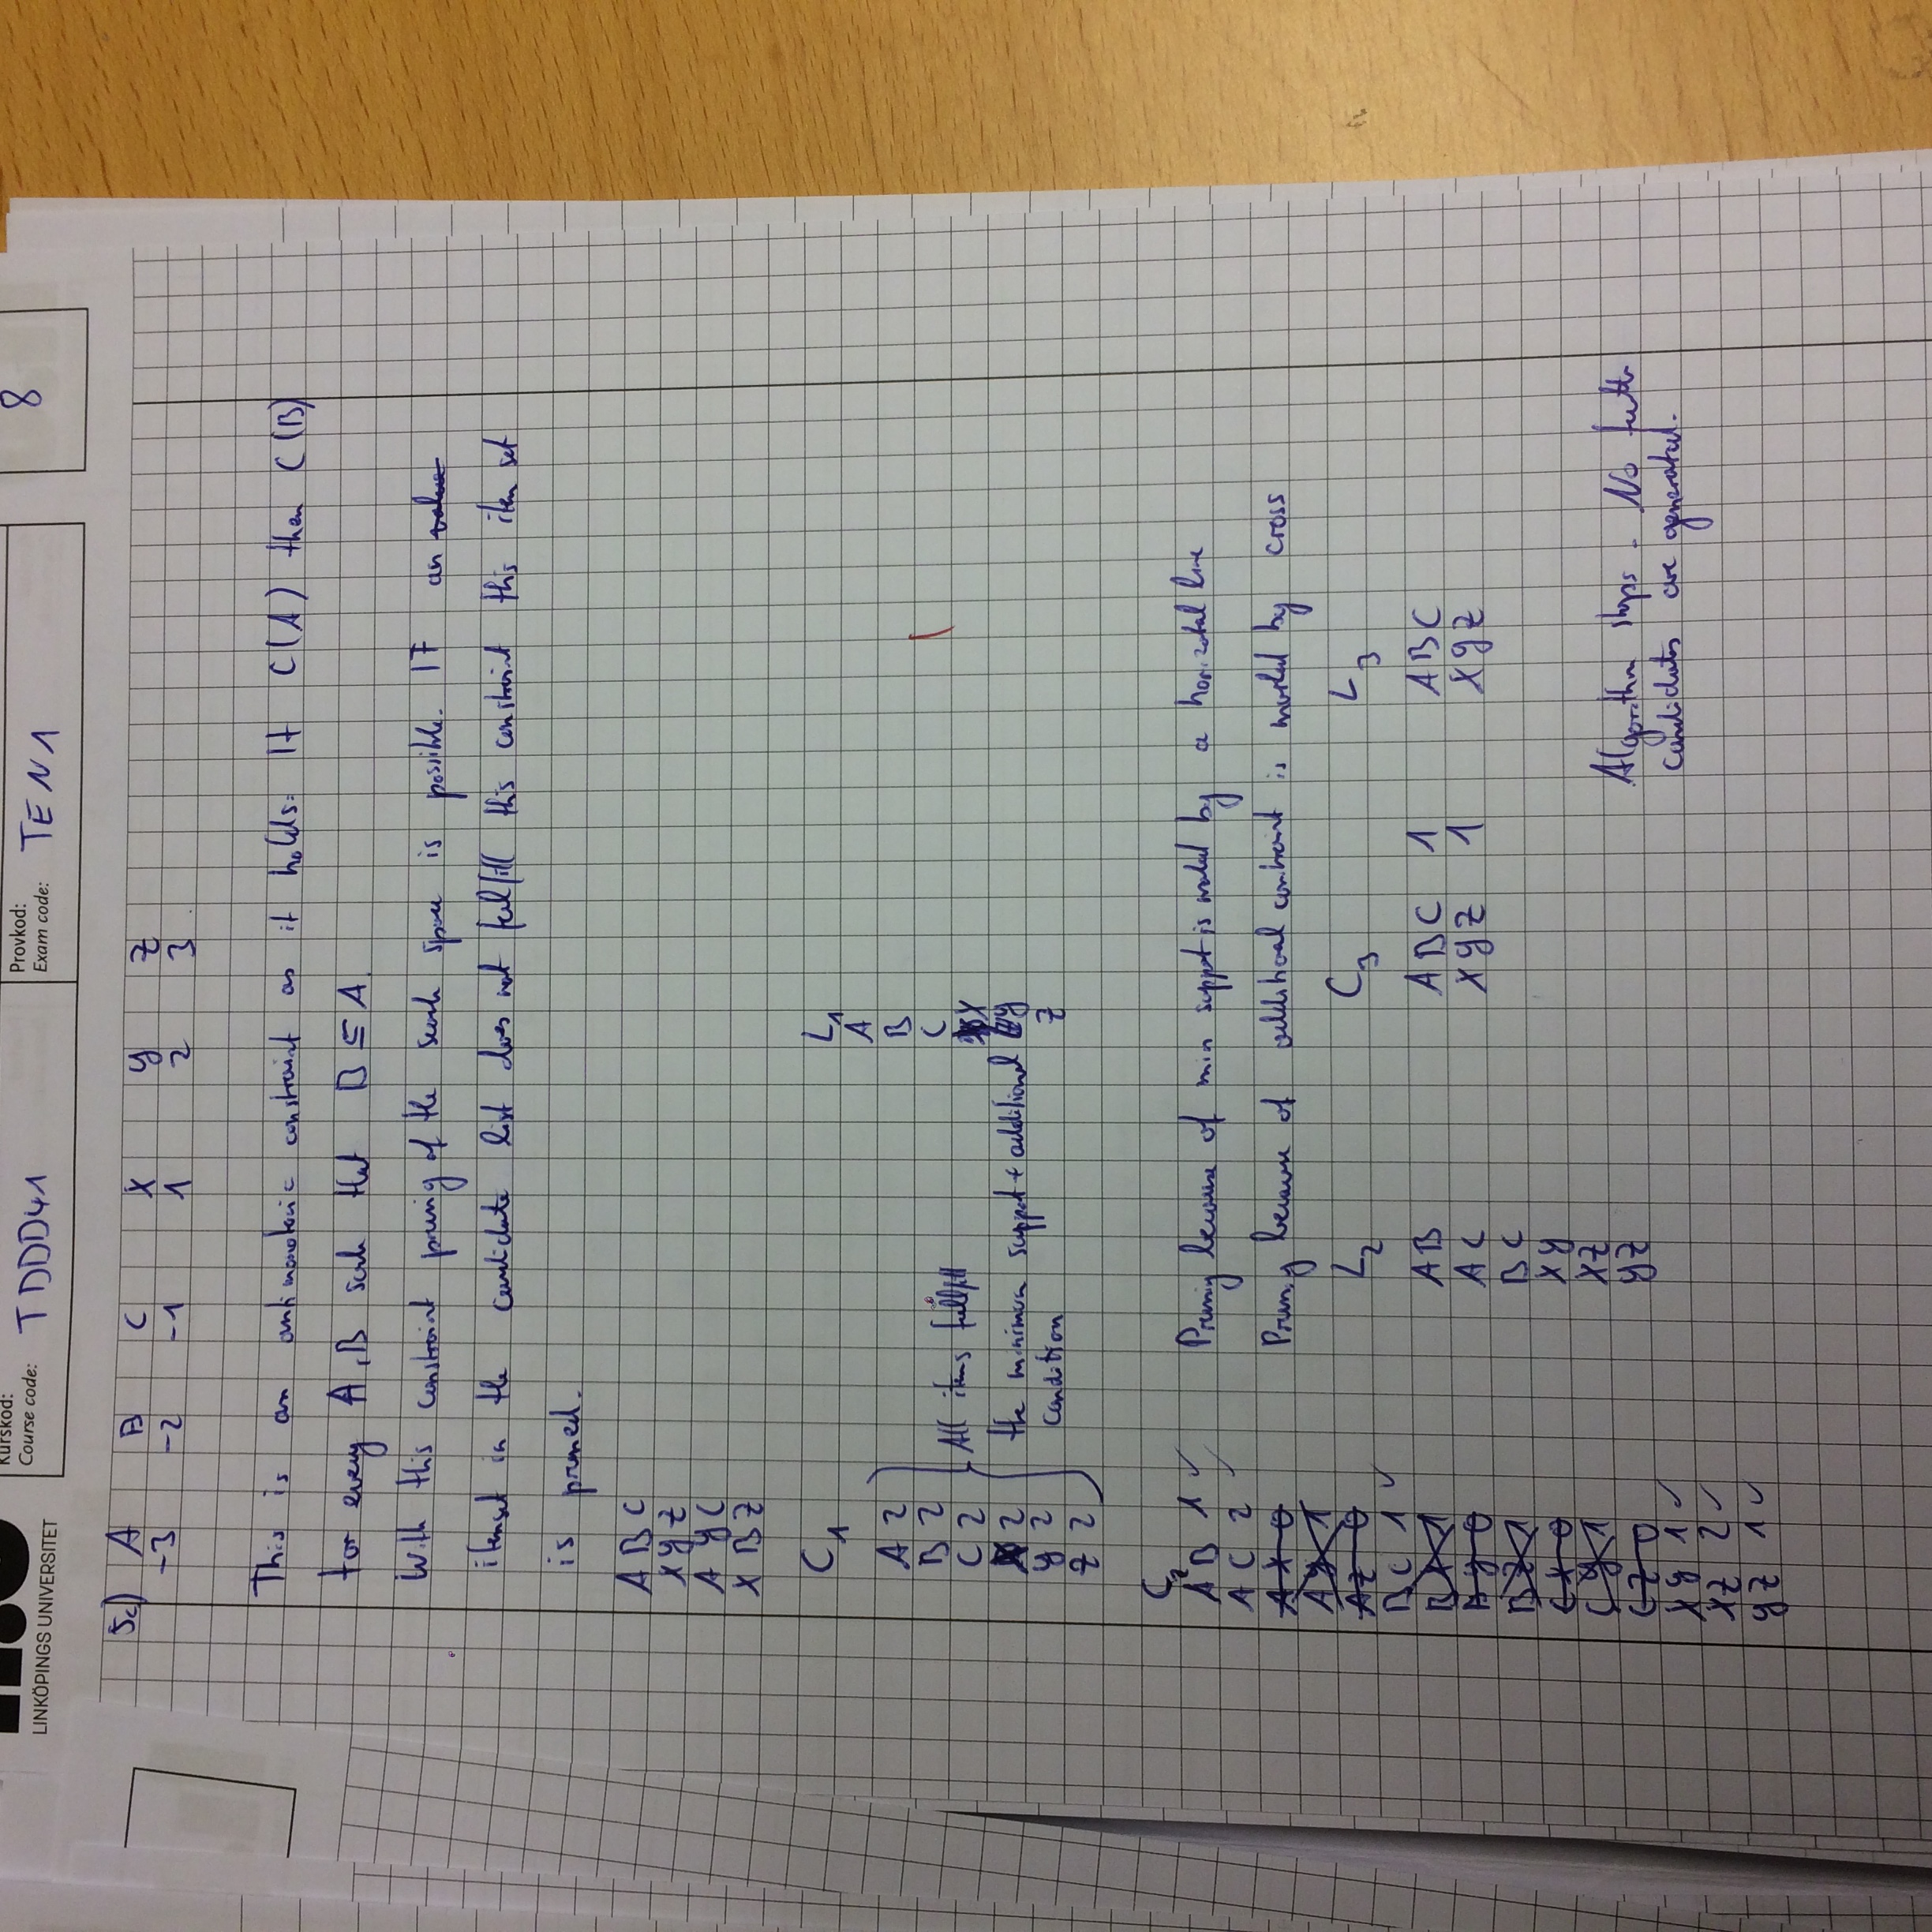 LINKÖPINGS UNIVERSITET
Kurskod:
Course code: TDDD41
Provkod:
Exam code: TEN1
8
5c) A B C X Y Z
-3 -2 -1 1 2 3
This is an antimonotonic constraint as it holds: If C(A) then C(B)
for every A, B such that B ⊆ A.
With this constraint pruning of the search space is possible. If an value
itemset in the candidate list does not fullfill this constraint this item set
is pruned.
A B C
X Y Z
A Y C
X B Z
C1 L1
A
A 2 B
B 2 C
C 2 X
X 2 Y
Y 2 Z
Z 2
All items fullfill
the minimum support + additional
condition
C2
AB 1 ✓
AC 2 ✓
AX 0
AY 1
AZ 0
BC 1 ✓
BX 1
BY 0
BZ 1
CX 0
CY 1
CZ 0
XY 1 ✓
XZ 2 ✓
YZ 1 ✓
Pruning because of min support is marked by a horizontal line
Pruning because of additional contraint is marked by cross
L2 C3 L3
AB ABC 1 ABC
AC XYZ 1 XYZ
BC
XY
XZ
YZ
Algorithm stops. No
candidates are generated.